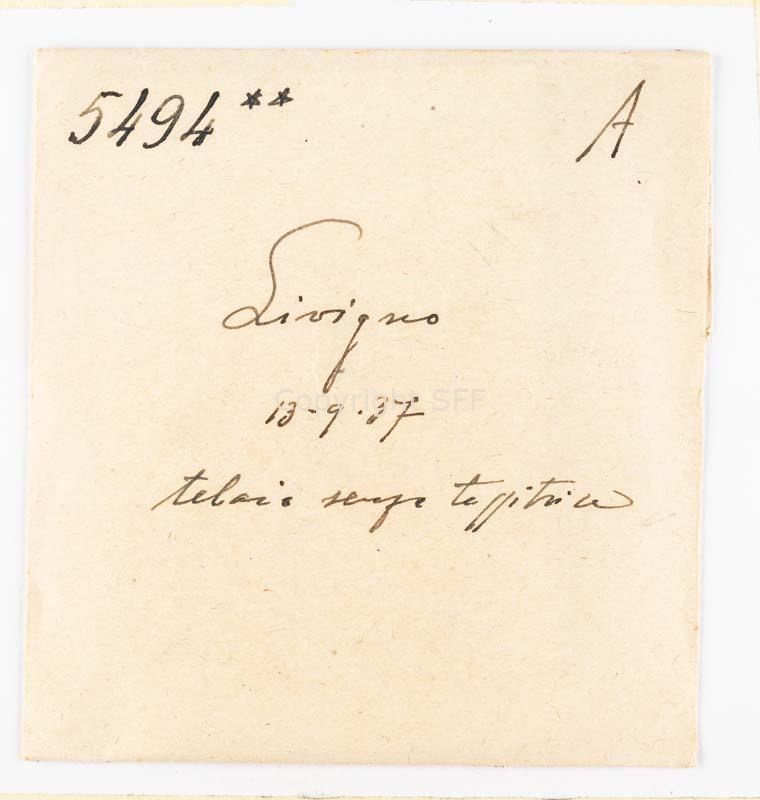 5494** A
Livigno
Copyright SFF
13-9-37
telaio senza tessitrice